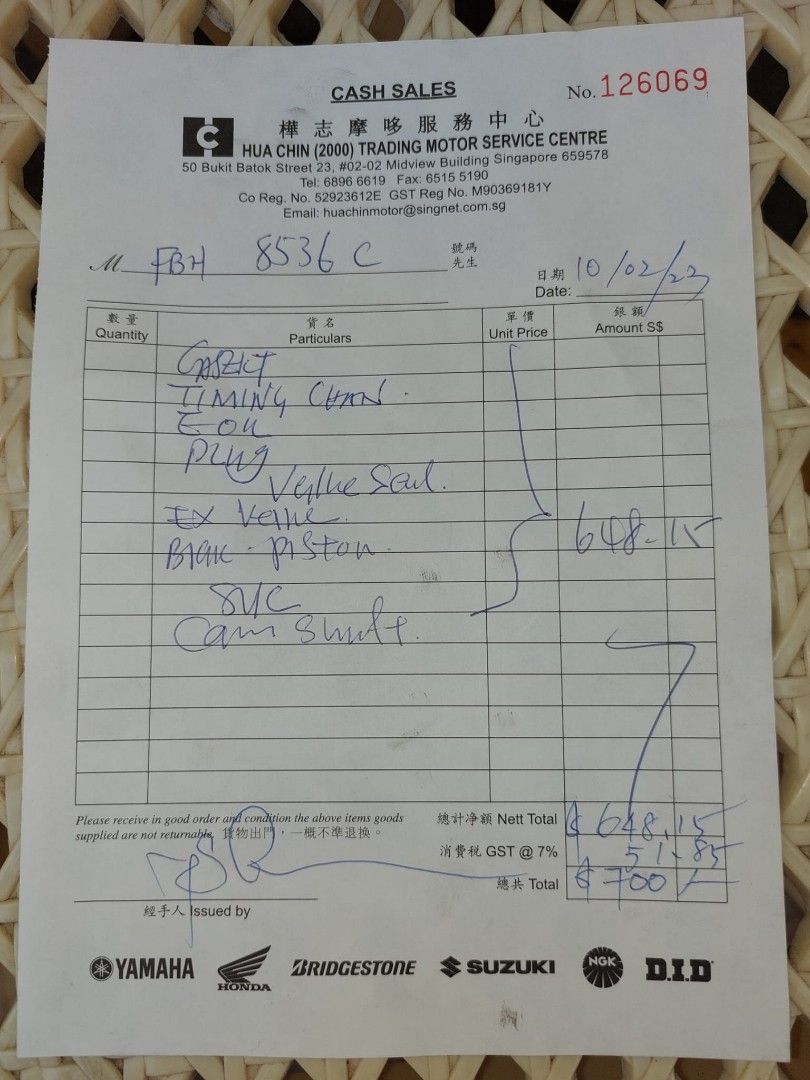 CASH SALES
No. 126069
樺志摩哆服務中心
HUA CHIN (2000) TRADING MOTOR SERVICE CENTRE
50 Bukit Batok Street 23, #02-02 Midview Building Singapore 659578
Tel: 6896 6619 Fax: 6515 5190
Co Reg. No. 52923612E GST Reg No. M90369181Y
Email: huachinmotor@singnet.com.sg
M FBH 8536 C 號碼
先生
日期 10/02/23
Date:
數量 貨名 單價 銀額
Quantity Particulars Unit Price Amount S$
TIMING CHAN.
E OIL
PLUG
Ex
648-15
piston.
SVC
Cam
Please receive in good order and condition the above items goods
supplied are not returnable. 貨物出門，一概不準退換。
總計净額 Nett Total $ 648.15
消費税 GST @ 7% 51-85
總共 Total $ 700/-
經手人 Issued by
YAMAHA HONDA BRIDGESTONE SUZUKI NGK D.I.D